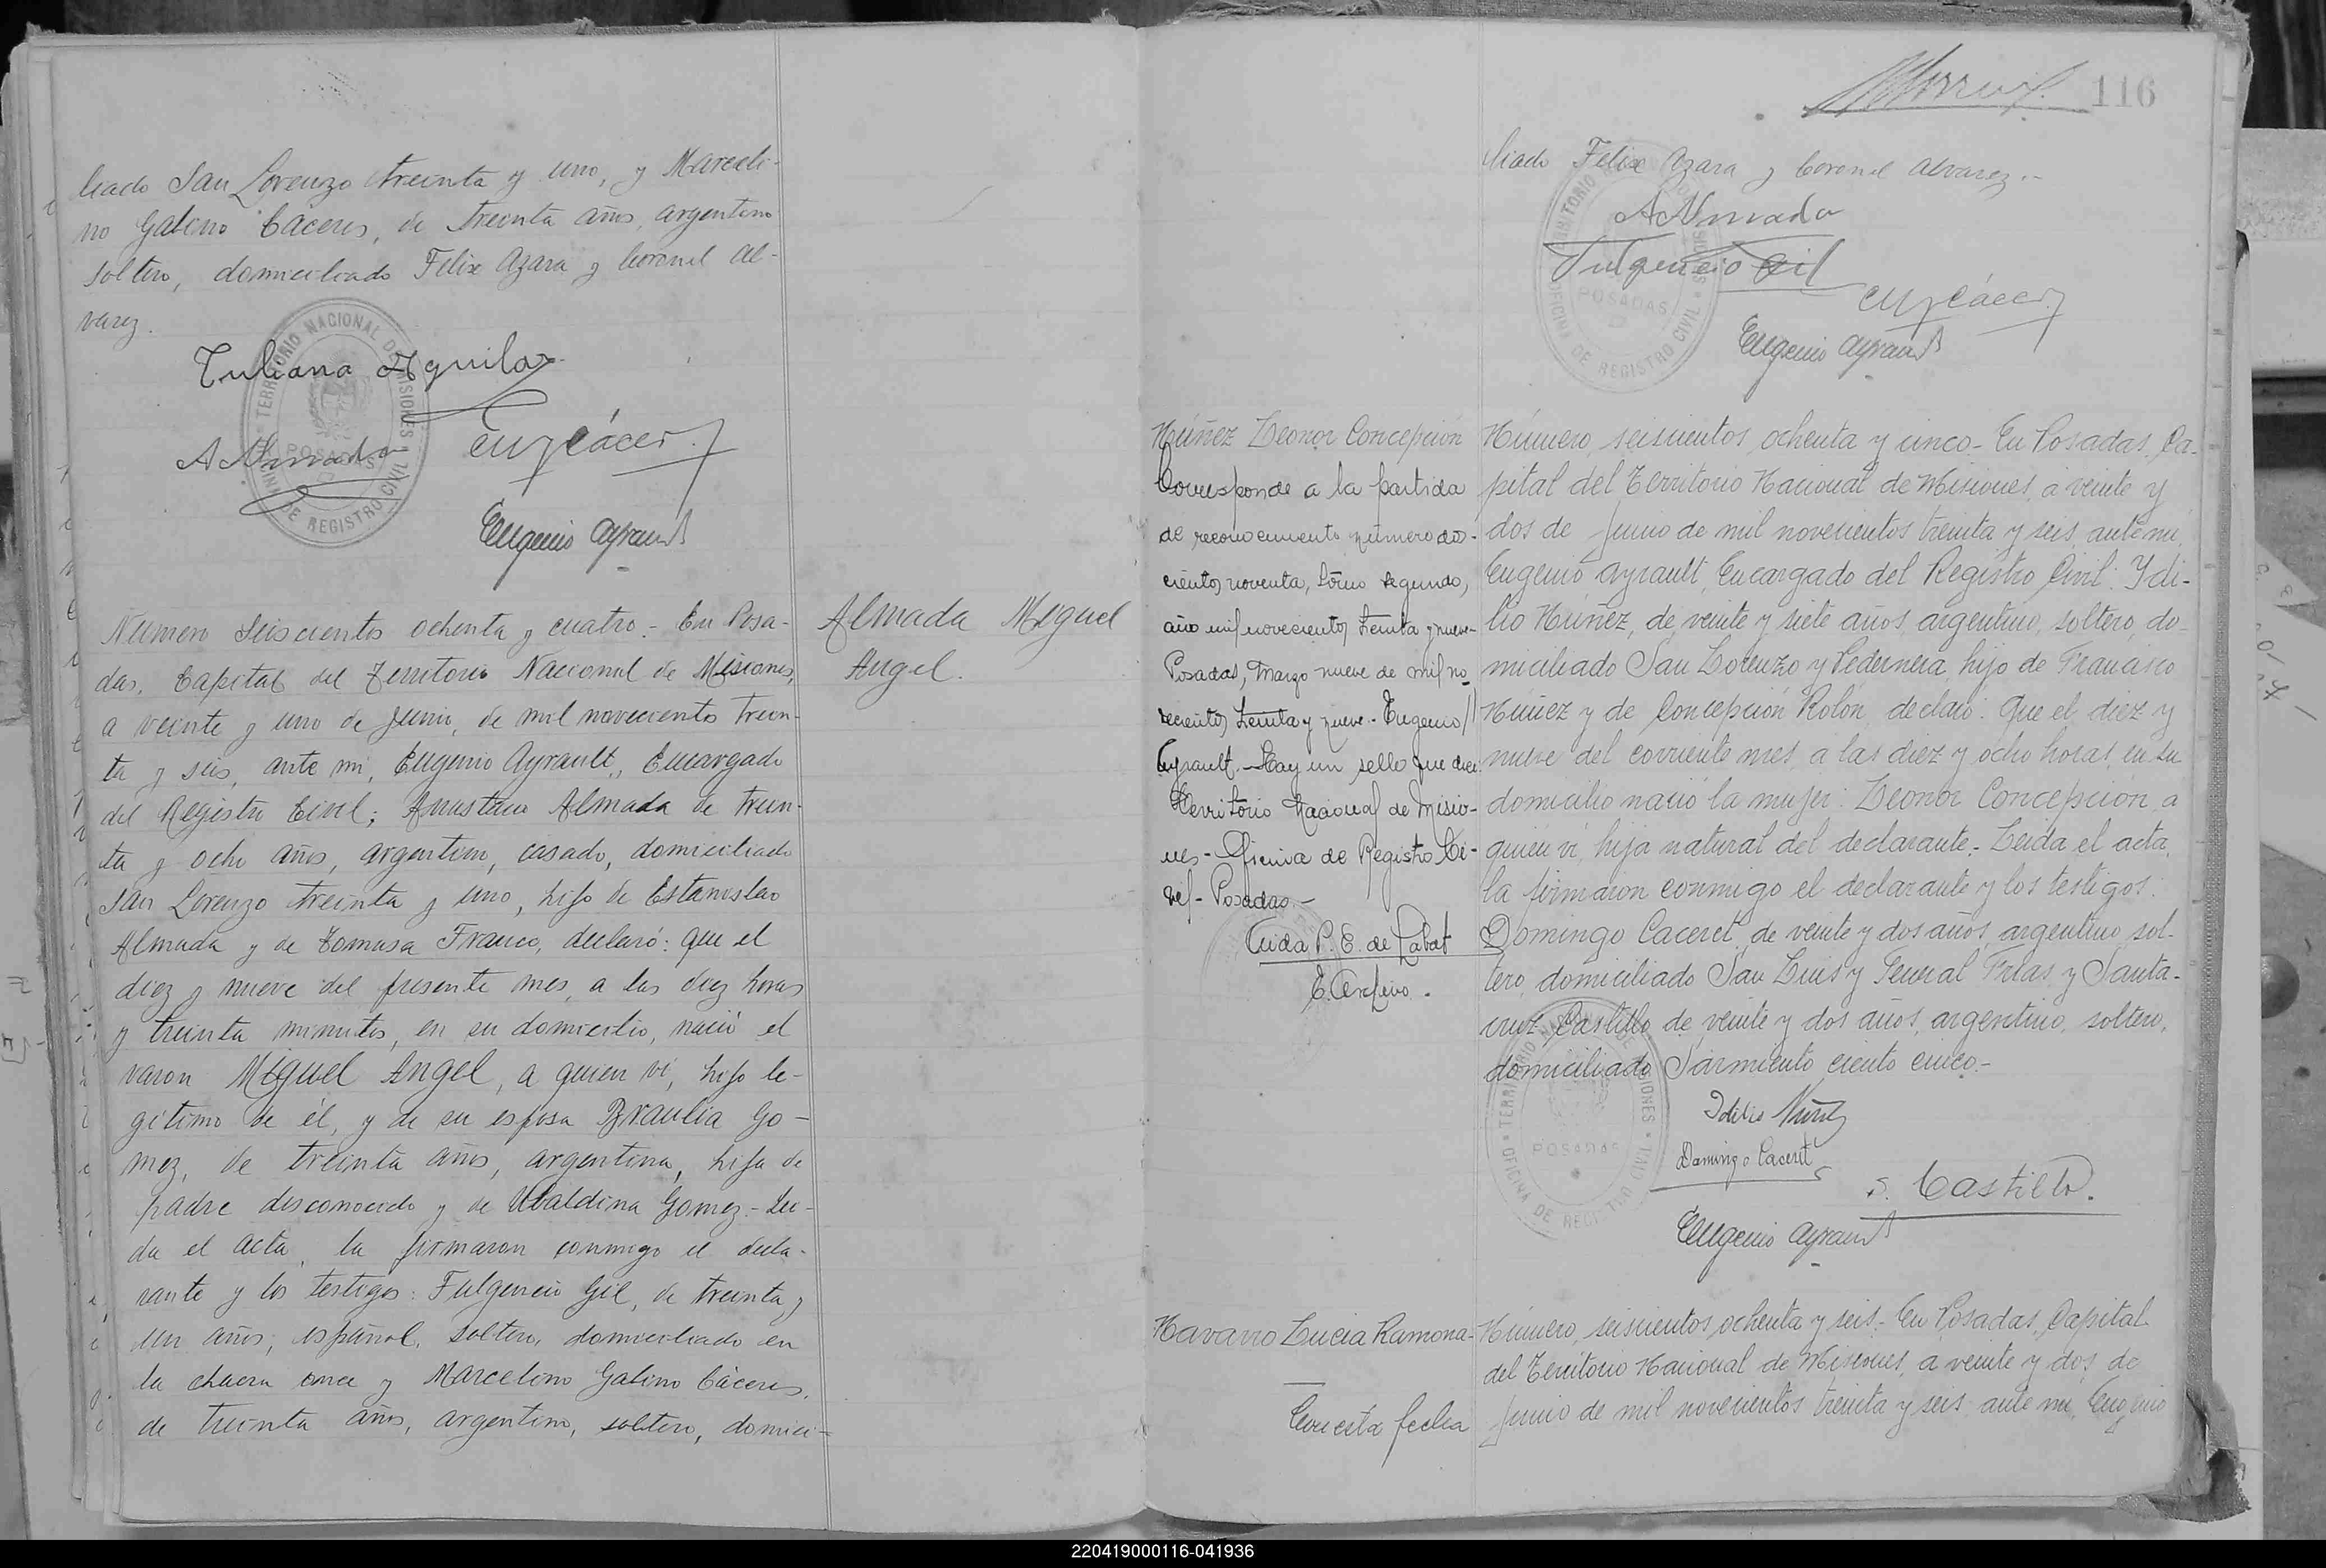 liado San Lorenzo treinta y uno, y Marceli-
no Galeno Cáceres, de treinta años, argentino
soltero, domiciliado Felix Azara y Coronel Al-
varez.
TERRITORIO NACIONAL DE MISIONES
POSADAS
OFICINA DE REGISTRO CIVIL
Juliana Aguilar
A Almada
Eugenio Ayrault
Numero seiscientos ochenta y cuatro.- En Posa-
das, Capital del Territorio Nacional de Misiones,
a veinte y uno de Junio, de mil novecientos trein-
ta y seis, ante mi, Eugenio Ayrault, Encargado
del Registro Civil; Anastacio Almada de trein-
ta y ocho años, argentino, casado, domiciliado
San Lorenzo treinta y uno, hijo de Estanislao
Almada y de Tomasa Franco, declaró: que el
diez y nueve del presente mes, a las diez horas
y treinta minutos, en su domicilio, nació el
varon Miguel Angel, a quien vi, hijo le-
gitimo de él, y de su esposa Braulia Go-
mez, de treinta años, argentina, hija de
padre desconocido y de Ubaldina Gomez.- Lei-
da el acta, la firmaron conmigo el decla-
rante y los testigos: Fulgencio Gil, de treinta y
un años, español, soltero, domiciliado en
la chacra once y Marcelino Galeno Cáceres,
de treinta años, argentino, soltero, domici-
Almada Miguel
Angel.
116
liado Felix Azara y Coronel Alvarez.-
A Almada
Fulgencio Gil
Eugenio Ayrault
Núñez Leonor Concepción
Corresponde a la partida
de reconocimiento número dos-
cientos noventa, tomo segundo,
año mil novecientos treinta y nueve-
Posadas, Marzo nueve de mil no-
vecientos treinta y nueve.- Eugenio
Ayrault.- Hay un sello que dice
Territorio Nacional de Misio-
nes- Oficina de Registro Ci-
vil- Posadas.-
E. Archivo.
Número seiscientos ochenta y cinco.- En Posadas, Ca-
pital del Territorio Nacional de Misiones, a veinte y
dos de Junio de mil novecientos treinta y seis, ante mi,
Eugenio Ayrault, Encargado del Registro Civil: Ydi-
lio Núñez, de veinte y siete años, argentino, soltero, do-
miciliado San Lorenzo y Pedernera, hijo de Francisco
Núñez y de Concepción Rolón, declaró: Que el diez y
nueve del corriente mes, a las diez y ocho horas, en su
domicilio nació la mujer: Leonor Concepción, a
quien vi, hija natural del declarante.- Leida el acta,
la firmaron conmigo el declarante y los testigos:
Domingo Caceret, de veinte y dos años, argentino, sol-
tero, domiciliado San Luis y General Frias, y Santa-
cruz Castillo, de veinte y dos años, argentino, soltero,
domiciliado Sarmiento ciento cinco.-
TERRITORIO NACIONAL DE MISIONES
POSADAS
OFICINA DE REGISTRO CIVIL
Idilio Núñez
Domingo Caceret
S. Castillo.
Eugenio Ayrault
Navarro Lucia Ramona-
Con esta fecha
Número, seiscientos ochenta y seis.- En Posadas, Capital
del Territorio Nacional de Misiones, a veinte y dos de
Junio de mil novecientos treinta y seis, ante mi, Eugenio
220419000116-041936